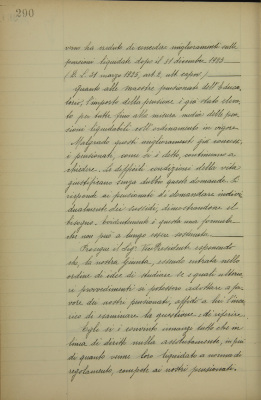 290
verno ha creduto di concedere miglioramenti sulle
pensioni liquidate dopo il 31 dicembre 1923
(R. D. 31 marzo 1925, art. 2, ult. capov.)
Quanto alle maestre pensionate dell'Educa
torio, l'importo della pensione è già stato eleva
to per tutte fino alla misura media delle pen
sioni liquidabili coll'ordinamento in vigore.
Malgrado questi miglioramenti già concessi,
i pensionati, come si è detto, continuano a
chiedere. Le difficili condizioni della vita
giustificano senza dubbio queste domande. Si
risponde ai pensionati di domandare indivi
dualmente dei sussidi, dimostrandone il
bisogno. Evidentemente è questa una formula
che non può a lungo essere sostenuta.
Prosegue il Sig. Vice Presidente esponendo
che, la nostra Giunta, essendo entrata nello
ordine di idee di studiare se e quali ulterio
ri provvedimenti si potessero adottare a fa
vore dei nostri pensionati, affidò a lui l'inca
rico di esaminare la questione e di riferire.
Egli si è convinto innanzi tutto che in
linea di diritto nulla assolutamente, in più
di quanto venne loro liquidato a norma di
regolamento, compete ai nostri pensionati.